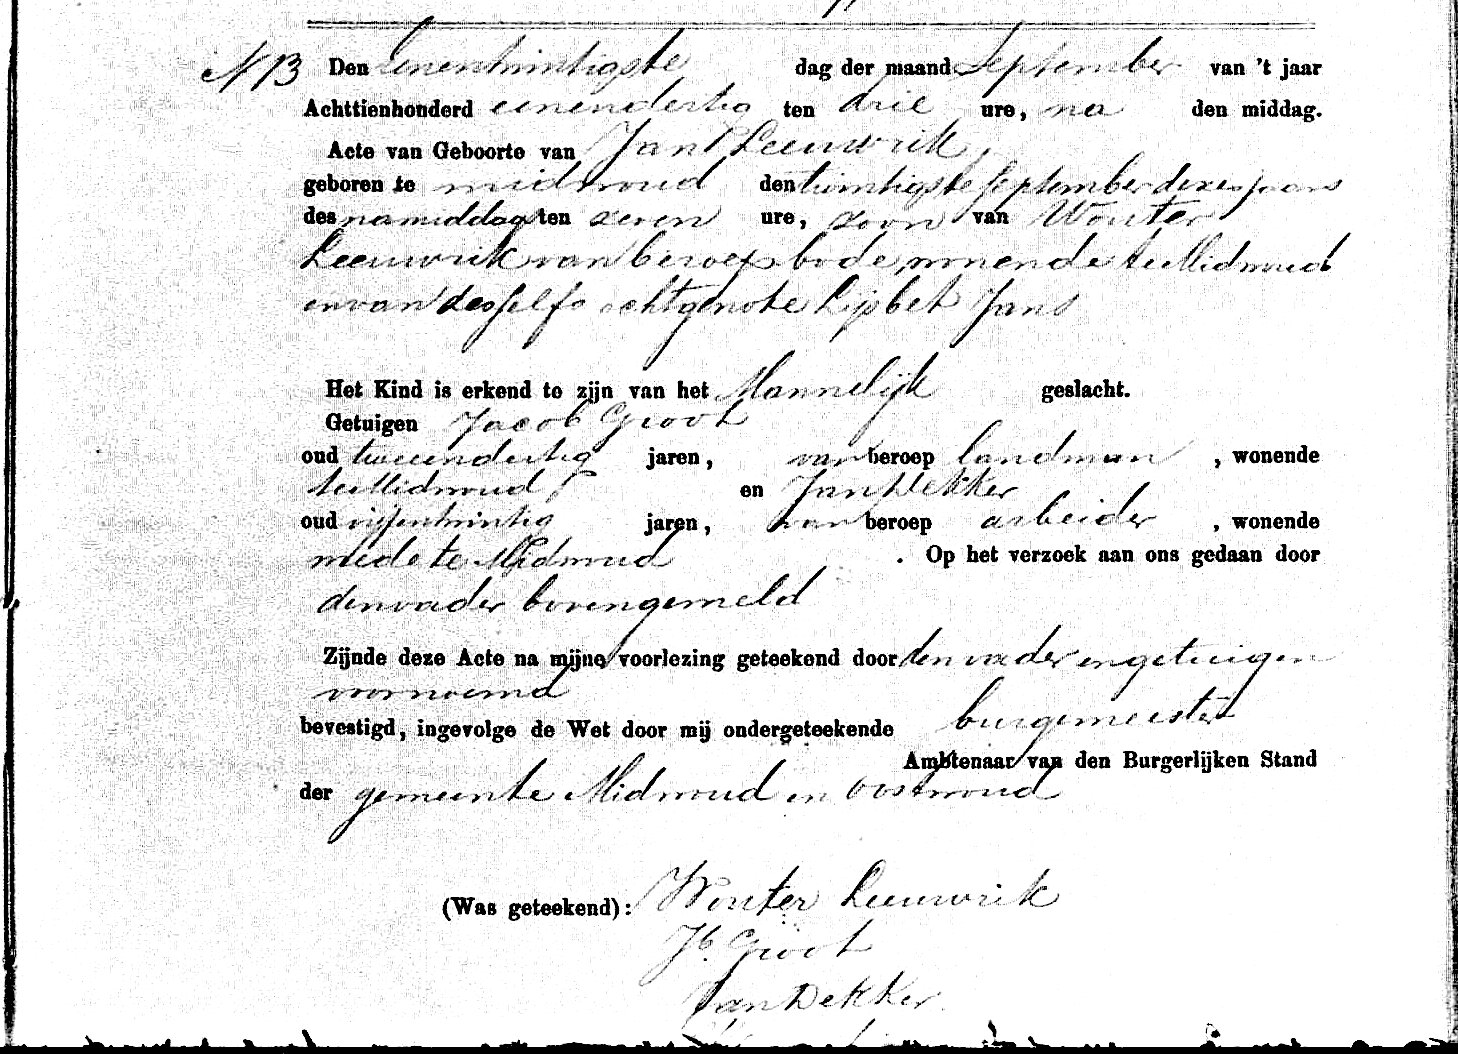 N 13 Den eenentwintigste dag der maand September van 't jaar
Achttienhonderd eenendertig ten drie ure, na den middag.
Acte van Geboorte van Jan Leeuwrik,
geboren te midwoud den twintigste September dezes jaars
des namiddags ten zeven ure, zoon van Wouter
Leeuwrik van beroep bode, wonende te Midwoud
en van deszelfs echtgenote Lijsbet Jans
Het Kind is erkend te zijn van het Mannelijk geslacht.
Getuigen Jacob Groot
oud tweeendertig jaren, van beroep landman, wonende
te Midwoud en Jan Dekker
oud vijfentwintig jaren, van beroep arbeider, wonende
mede te Midwoud. Op het verzoek aan ons gedaan door
den vader bovengemeld
Zijnde deze Acte na mijne voorlezing geteekend door den vader en getuigen
voornoemd
bevestigd, ingevolge de Wet door mij ondergeteekende burgemeester
Ambtenaar van den Burgerlijken Stand
der gemeente Midwoud en Oostwoud
(Was geteekend): Wouter Leeuwrik
Jb. Groot
Jan Dekker